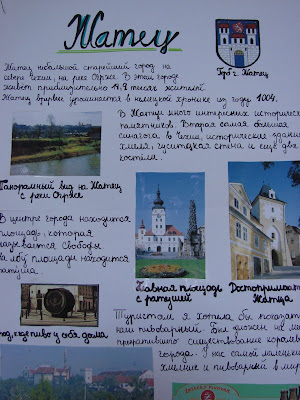 Жатец
Жатец небольшой старейший город на
севере Чехии, на реке Огрже. В этом городе
живёт приблизительно 19,8 тысяч жителей.
Жатец впервые упоминается в немецкой хронике из году 1004.
Герб г. Жатец
В Жатце много интересных историческ
памятников. Вторая самая большая
синагога в Чехии, исторические здания
хмеля, гуситская стена и ещё два
костёла.
Панорамный вид на Жатец
с реки Огрже
В центре города находится
площадь, которая
называется Свободы.
На эту площади находится
ратуша.
Главная площадь
с ратушей
Достопримечат
Жатца
город, где пиво у себя дома
Туристам я хотела бы показать
наш пивоварный.
города. У нас самой маленький
хмелние и пивоварный в мире